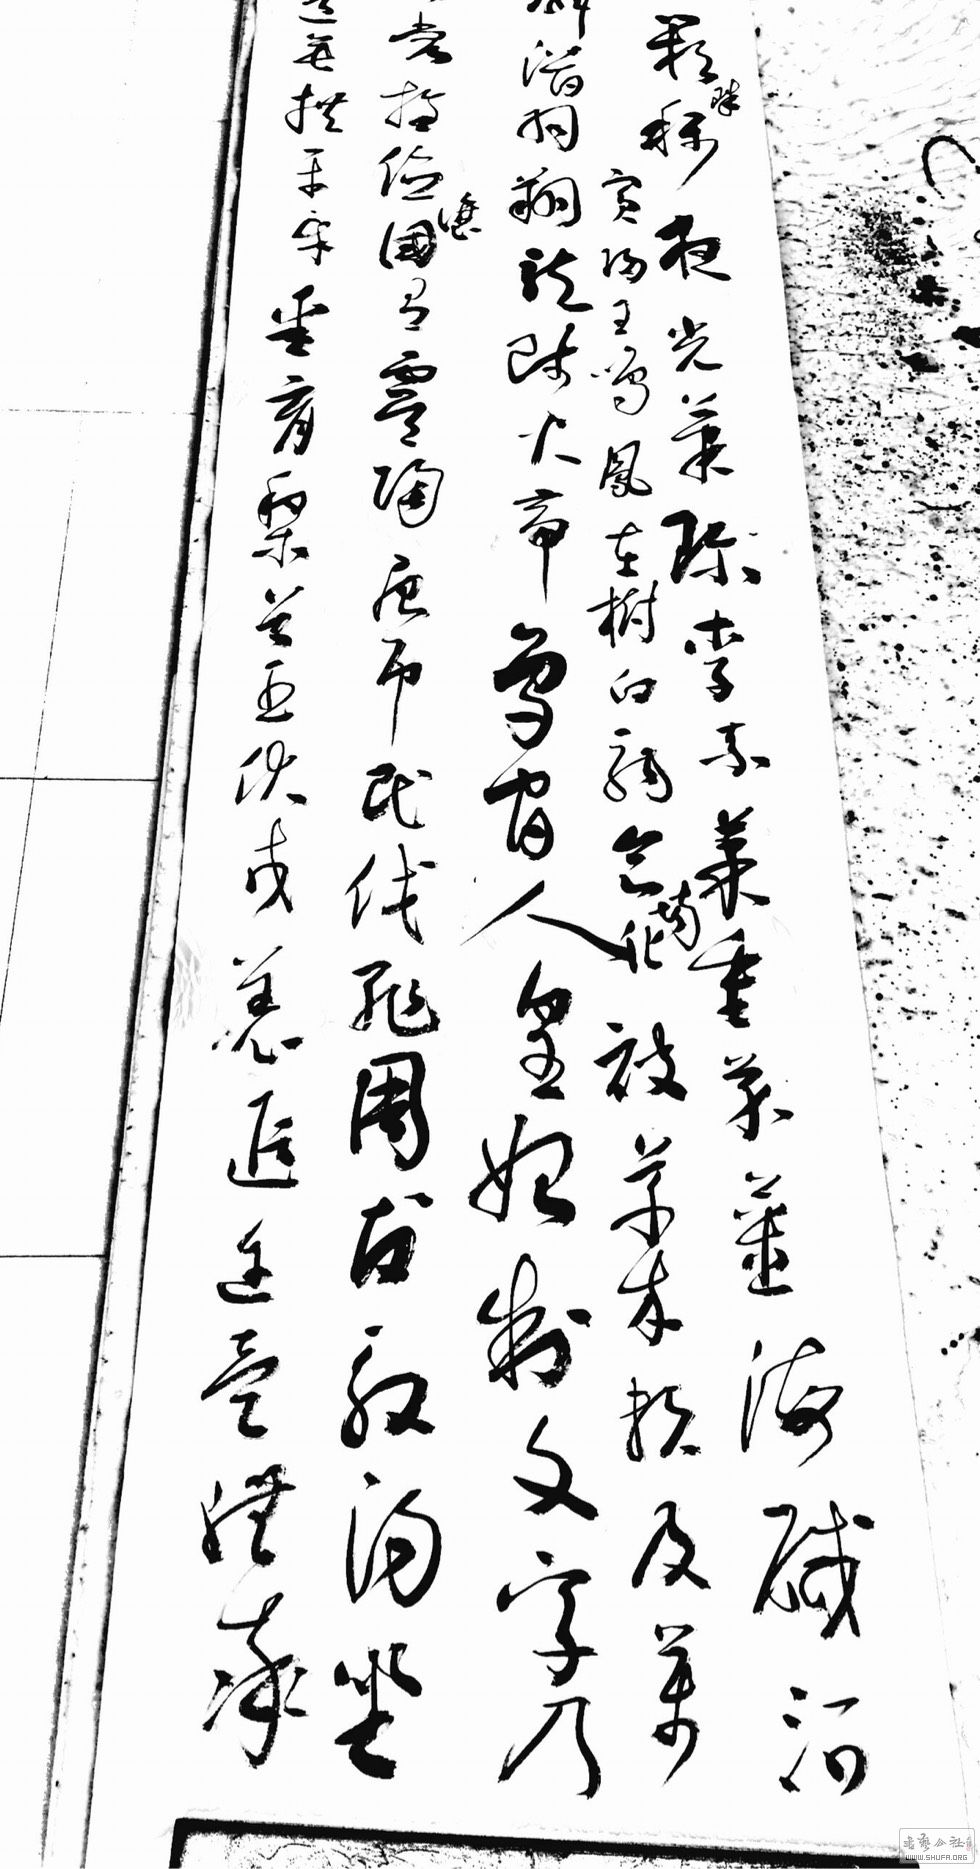 珠称夜光菓珍李柰菜重芥薑海醎河
賓歸王鳴鳳在樹白駒食場化被草木賴及萬
鱗潛羽翔龍師火帝鳥官人皇始制文字乃
裳推位讓國有虞陶唐弔民伐罪周發殷湯坐
道垂拱平章愛育黎首臣伏戎羌遐邇壹體率
WWW.SHUFA.ORG